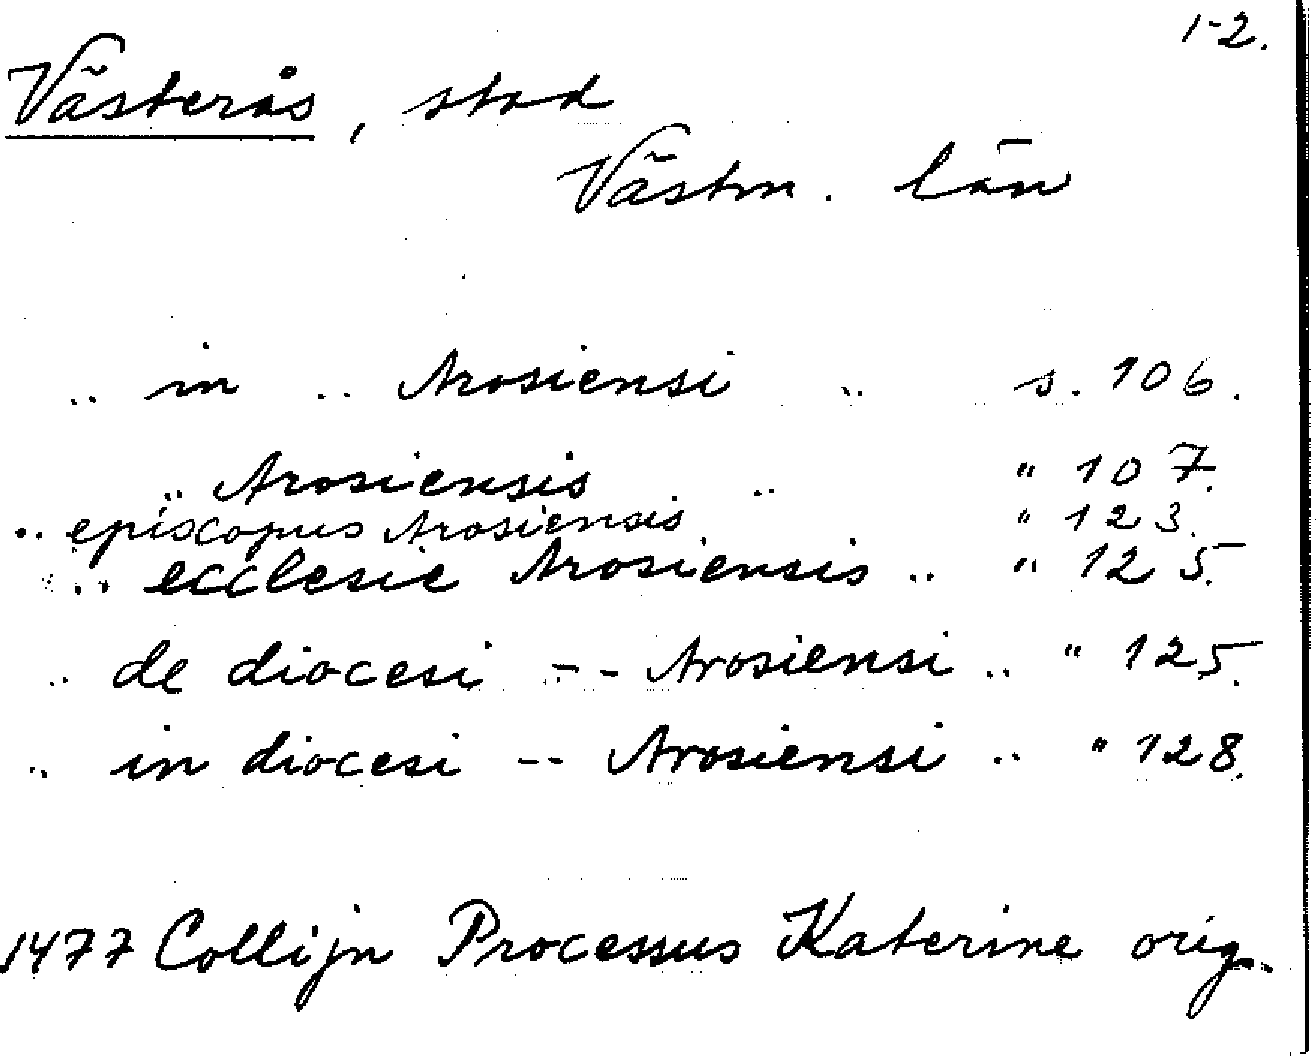 1-2.
Västerås, stad
Västm. län
.. in .. Arosiensi .. s. 106.
.. Arosiensis .. " 107.
.. episcopus Arosiensis " 123.
.. ecclesie Arosiensis .. " 125.
.. de diocesi -- Arosiensi .. " 125.
.. in diocesi -- Arosiensi .. " 128.
1477 Collijn Processus Katerine orig.